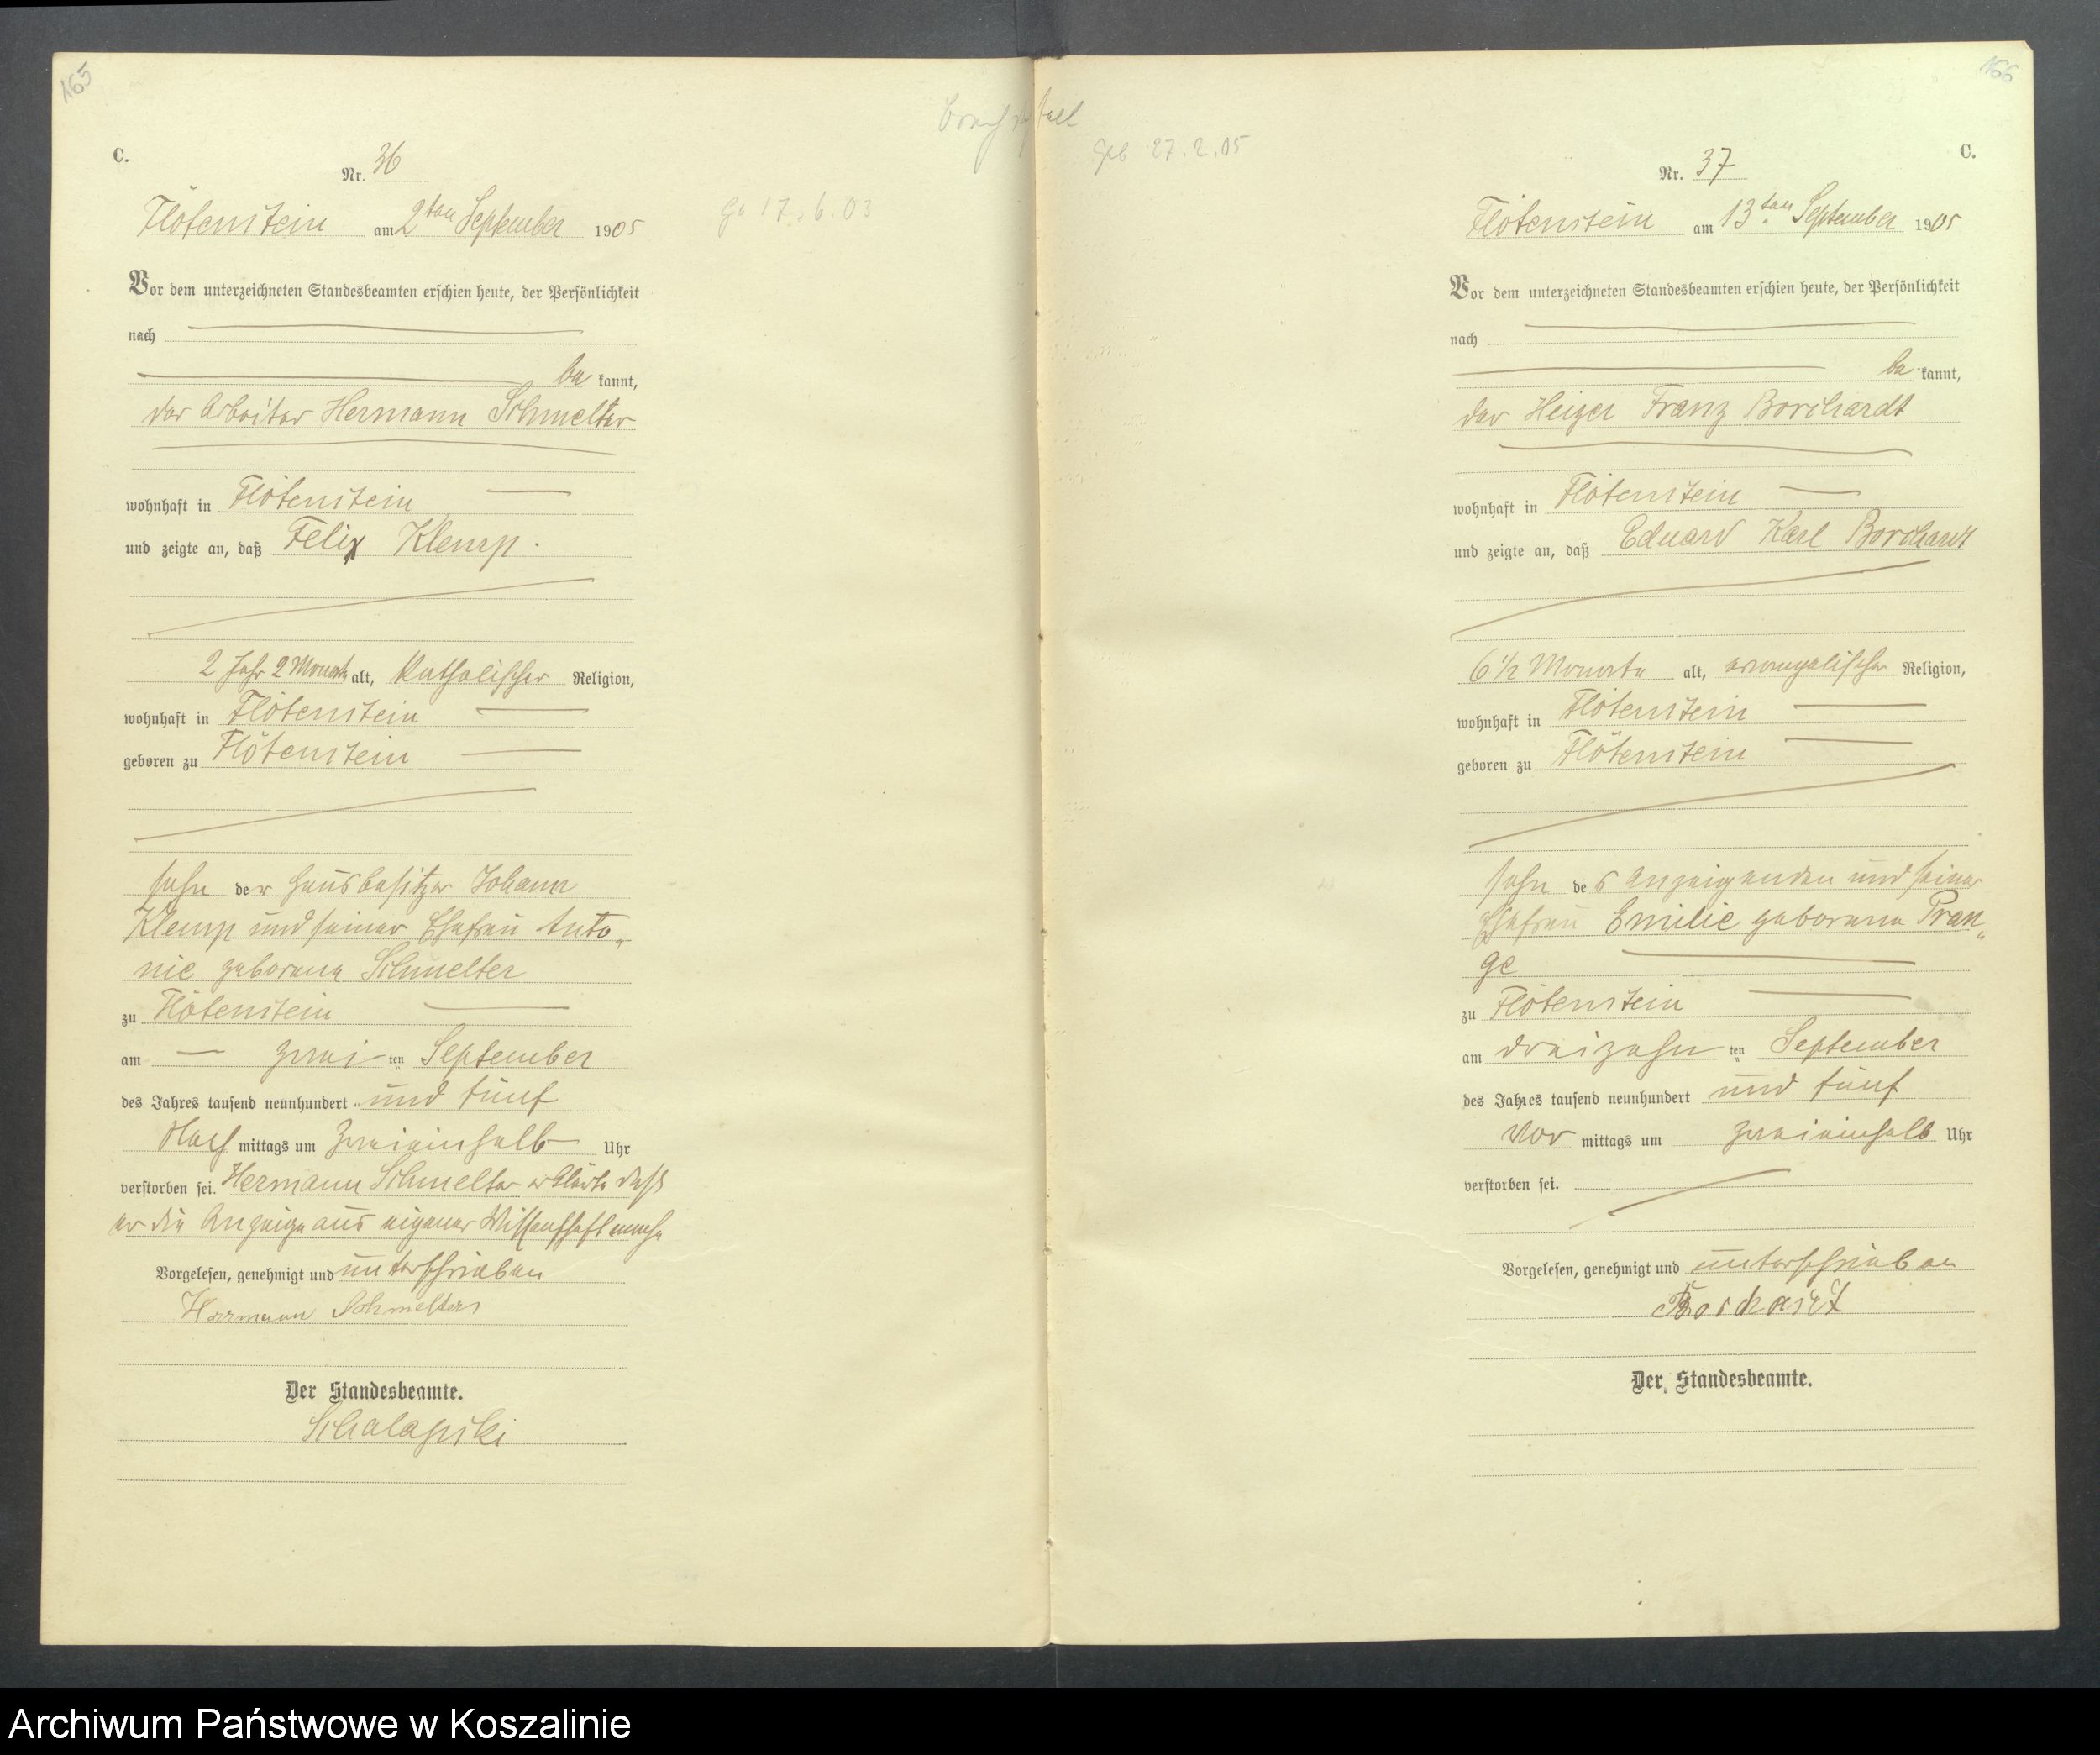 165
C.
Nr. 36
Flötenstein am 2ten September 1905
Vor dem unterzeichneten Standesbeamten erschien heute, der Persönlichkeit
nach
be kannt,
der Arbeiter Hermann Schmelter
wohnhaft in Flötenstein
und zeigte an, daß Felix Klemp.
2 Jahr 2 Monate alt, katholischer Religion,
wohnhaft in Flötenstein
geboren zu Flötenstein
Sohn der Hausbesitzer Johann
Klemp und seiner Ehefrau Anto„
nie geborene Schmelter
zu Flötenstein
am zwei ten September
des Jahres tausend neunhundert und fünf
Nach mittags um zweieinhalb Uhr
verstorben sei. Hermann Schmelter erklärte daß
er die Anzeige aus eigener Wissenschaft mache
Vorgelesen, genehmigt und unterschrieben
Hermann Schmelter
Der Standesbeamte.
Schalapski
ge 17.6.03
geb 27.2.05
166
C.
Nr. 37
Flötenstein am 13ten September 1905
Vor dem unterzeichneten Standesbeamten erschien heute, der Persönlichkeit
nach
be kannt,
der Heizer Franz Borchardt
wohnhaft in Flötenstein
und zeigte an, daß Eduard Karl Borchardt
6 1/2 Monate alt, evangelischer Religion,
wohnhaft in Flötenstein
geboren zu Flötenstein
Sohn des Anzeigenden und seiner
Ehefrau Emilie geborene Pran„
ge
zu Flötenstein
am dreizehn ten September
des Jahres tausend neunhundert und fünf
Vor mittags um zweieinhalb Uhr
verstorben sei.
Vorgelesen, genehmigt und unterschrieben
Borchardt
Der Standesbeamte.
Archiwum Państwowe w Koszalinie